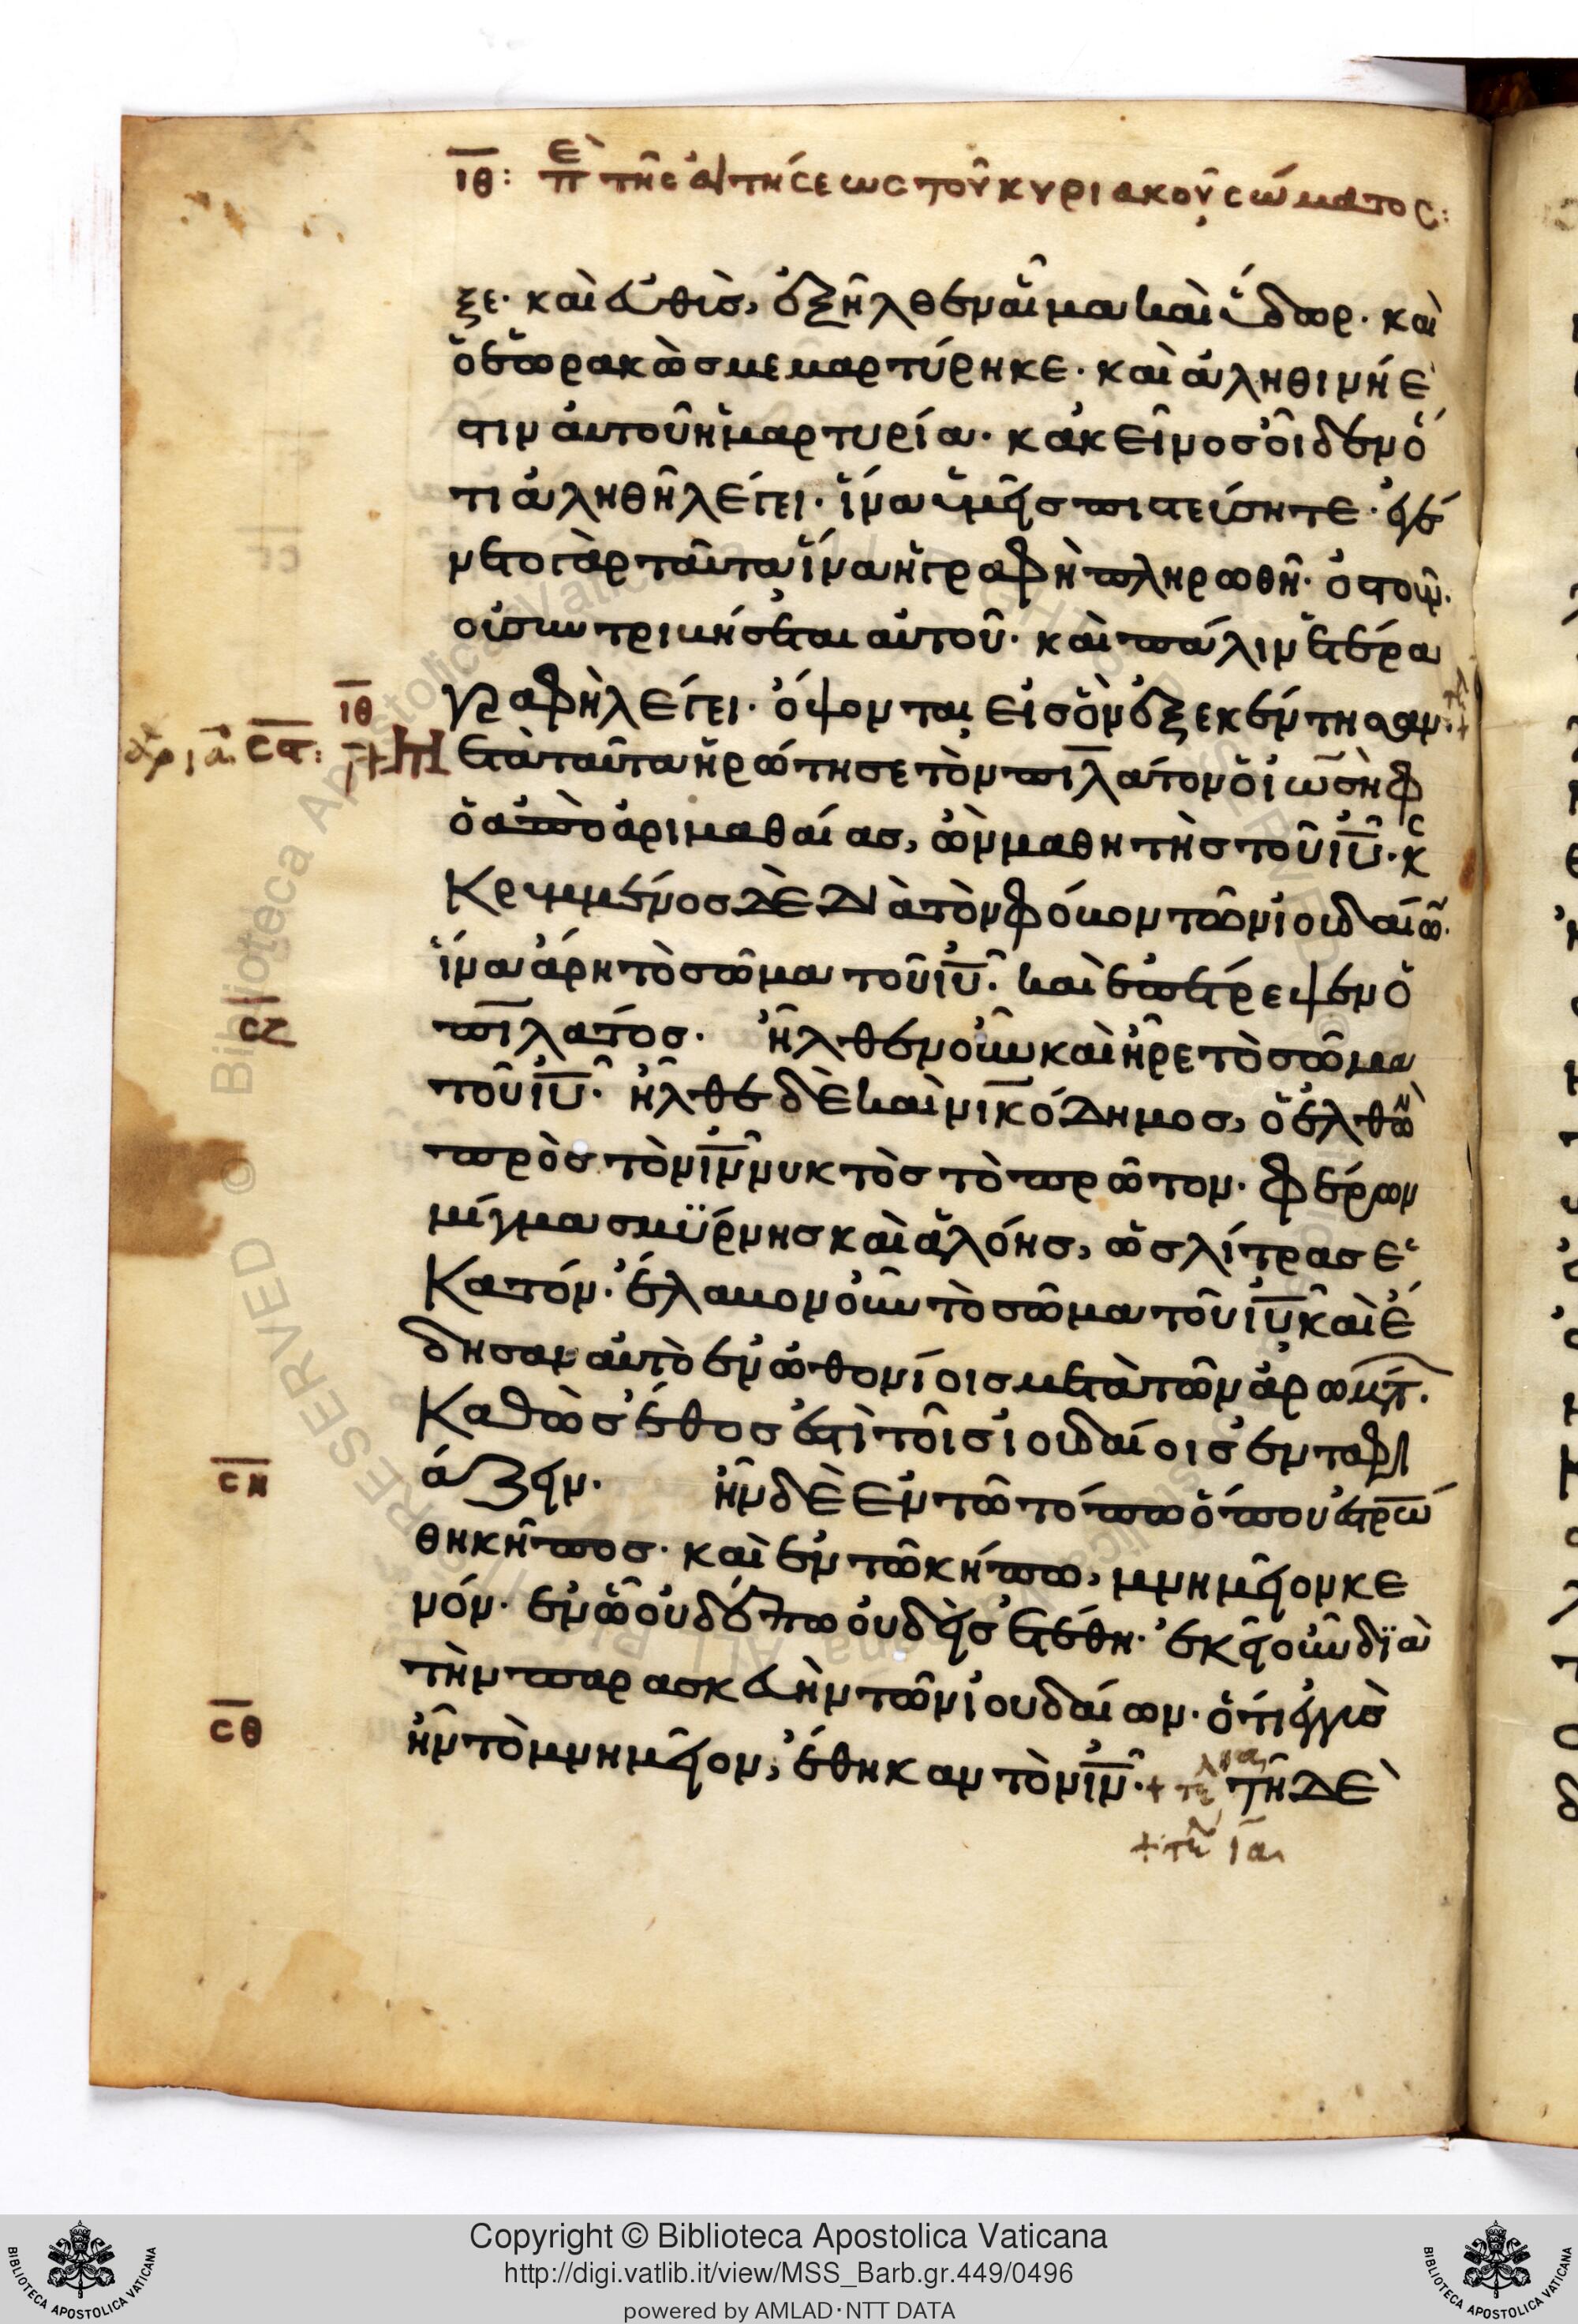 ιθ: ἐπ τῆς αἰτήσεως τοῦ κυριακοῦ σώματος:
ξε· καὶ εὐθὺς, ἐξῆλθεν αἷμα καὶ ὕδωρ· καὶ
ὁ ἑωρακὼς μεμαρτύρηκε· καὶ ἀληθινή ἐ
στιν αὐτοῦ ἡ μαρτυρία· κἀκεῖνος οἶδεν ὅ
τι ἀληθῆ λέγει· ἵνα ὑμεῖς πιστεύσητε· ἐγέ
νετο γὰρ ταῦτα ἵνα ἡ γραφὴ πληρωθῆ· ὀστοῦν
οὐ συντριβήσεται αὐτοῦ· καὶ πάλιν ἑτέρα
γραφὴ λέγει· ὄψονται εἰς ὃν ἐξεκέντησαν·
ιθ
σϛ: Μετὰ ταῦτα ἠρώτησε τὸν πιλάτον ὁ ἰωσὴφ
ὁ ἀπὸ ἀριμαθαίας, ὢν μαθητὴς τοῦ ἰῦ·
κεκρυμμένος δὲ διὰ τὸν φόβον τῶν ἰουδαίων·
ἵνα ἄρη τὸ σῶμα τοῦ ἰῦ· καὶ ἐπέτρεψεν ὁ
σζ πιλάτος· ἦλθεν οὖν καὶ ἦρε τὸ σῶμα
τοῦ ἰῦ· ἦλθε δὲ καὶ νικόδημος, ὁ ἐλθὼν
πρὸς τὸν ἰν νυκτὸς τὸ πρῶτον· φέρων
μίγμα σμύρνης καὶ ἀλόης, ὡς λίτρας ἑ
κατόν· ἔλαβον οὖν τὸ σῶμα τοῦ ἰῦ καὶ ἔ
δησαν αὐτὸ ἐν ὀθονίοις μετὰ τῶν ἀρωμάτ·
καθὼς ἔθος ἐστὶ τοῖς ἰουδαίοις ἐνταφι
ση άζειν· ἦν δὲ ἐν τῶ τόπω ὅπου ἐστρώ
θη κῆπος· καὶ ἐν τῶ κήπω, μνημεῖον κε
νόν· ἐν ὧ οὐδέπω οὐδεὶς ἐτέθη· ἐκεῖ οὖν διὰ
τὴν παρασκευὴν τῶν ἰουδαίων· ὅτι ἐγγὺς
σθ ἦν τὸ μνημεῖον, ἔθηκαν τὸν ἰν· τῆ δὲ
Copyright © Biblioteca Apostolica Vaticana
http://digi.vatlib.it/view/MSS_Barb.gr.449/0496
powered by AMLAD·NTT DATA